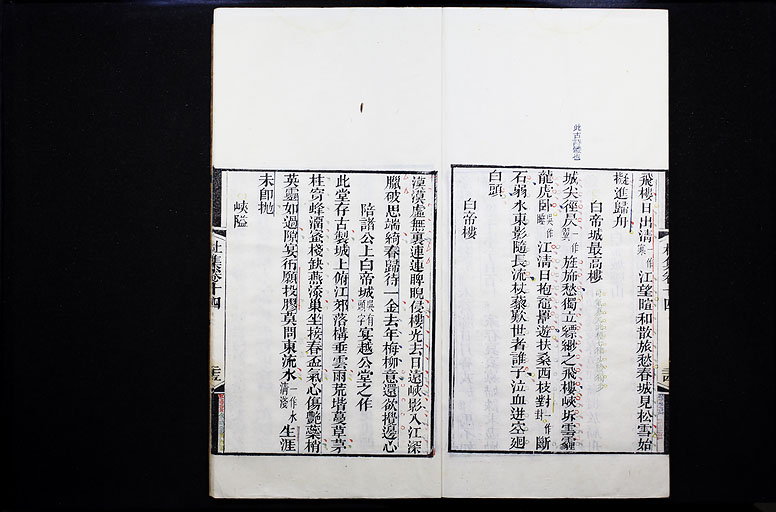 此古詩體也
飛樓日出清一作寒江望暄和散旅愁春城見松雪始
擬進歸舟
白帝城最高樓
城尖徑昃一作翼旌旆愁獨立縹緲之飛樓峽坼雲霾
龍虎臥吳作睡江清日抱黿鼉遊扶桑西枝對一作封斷
石弱水東影隨長流杖藜歎世者誰子泣血迸空廻
白頭
白帝樓
漠漠虛無裏連連睥睨侵樓光去日遠峽影入江深
臘破思端綺春歸待一金去年梅柳意還欲攪邊心
陪諸公上白帝城吳有頭字宴越公堂之作
此堂存古製城上俯江郊落構垂雲雨荒堦蔓草茅
柱穿蜂溜蜜棧缺燕添巢坐接春盃氣心傷艷蘂梢
英靈如過隙宴衎願投膠莫問東流水一作水清淺生涯
未即抛
峽隘
杜集卷十四